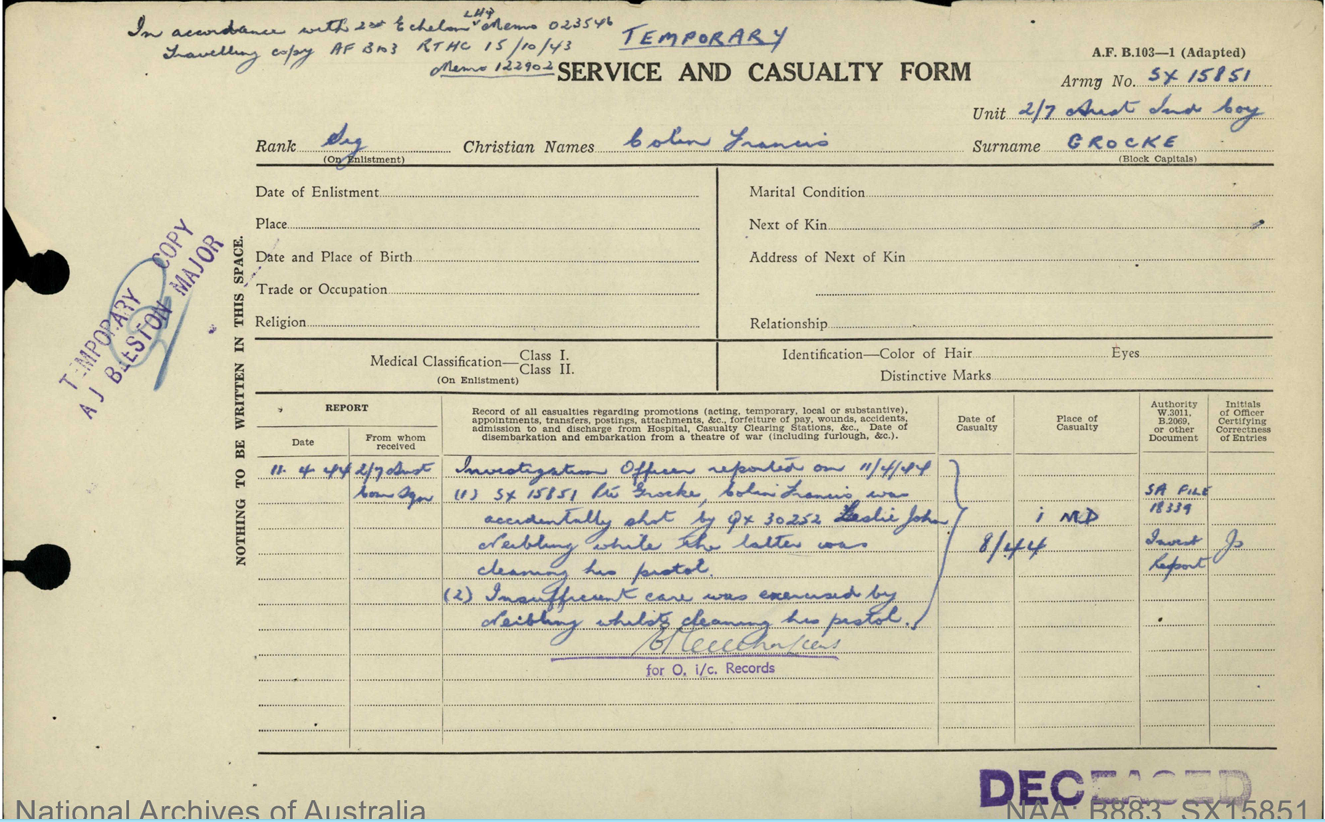 In accordance with 2nd Echelon LHQ Memo 023546
Travelling copy AF B103 RTHC 15/10/43
Memo 122902
TEMPORARY
A.F. B.103—1 (Adapted)
SERVICE AND CASUALTY FORM
Army No. SX 15851
Unit 2/7 Aust Ind Coy
Rank Sig
(On Enlistment)
Christian Names Colin Francis
Surname GROCKE
(Block Capitals)
Date of Enlistment
Place
Date and Place of Birth
Trade or Occupation
Religion
Marital Condition
Next of Kin
Address of Next of Kin
Relationship
Medical Classification—Class I.
Class II.
(On Enlistment)
Identification—Color of Hair Eyes
Distinctive Marks
NOTHING TO BE WRITTEN IN THIS SPACE.
TEMPORARY COPY
A J BEESTON MAJOR
REPORT
Date
From whom
received
Record of all casualties regarding promotions (acting, temporary, local or substantive),
appointments, transfers, postings, attachments, &c., forfeiture of pay, wounds, accidents,
admission to and discharge from Hospital, Casualty Clearing Stations, &c., Date of
disembarkation and embarkation from a theatre of war (including furlough, &c.).
Date of
Casualty
Place of
Casualty
Authority
W.3011,
B.2069,
or other
Document
Initials
of Officer
Certifying
Correctness
of Entries
11. 4 44 2/7 Aust
Com Sqn
Investigation Officer reported on 11/4/44
(1) SX 15851 Pte Grocke, Colin Francis was
accidentally shot by QX 30252 Leslie John
Neibling while the latter was
cleaning his pistol.
(2) Insufficient care was exercised by
Neibling whilst cleaning his pistol.
8/44
i MD
SA FILE
18339
Invest
Report
for O. i/c. Records
DECEASED
National Archives of Australia
NAA: B883, SX15851